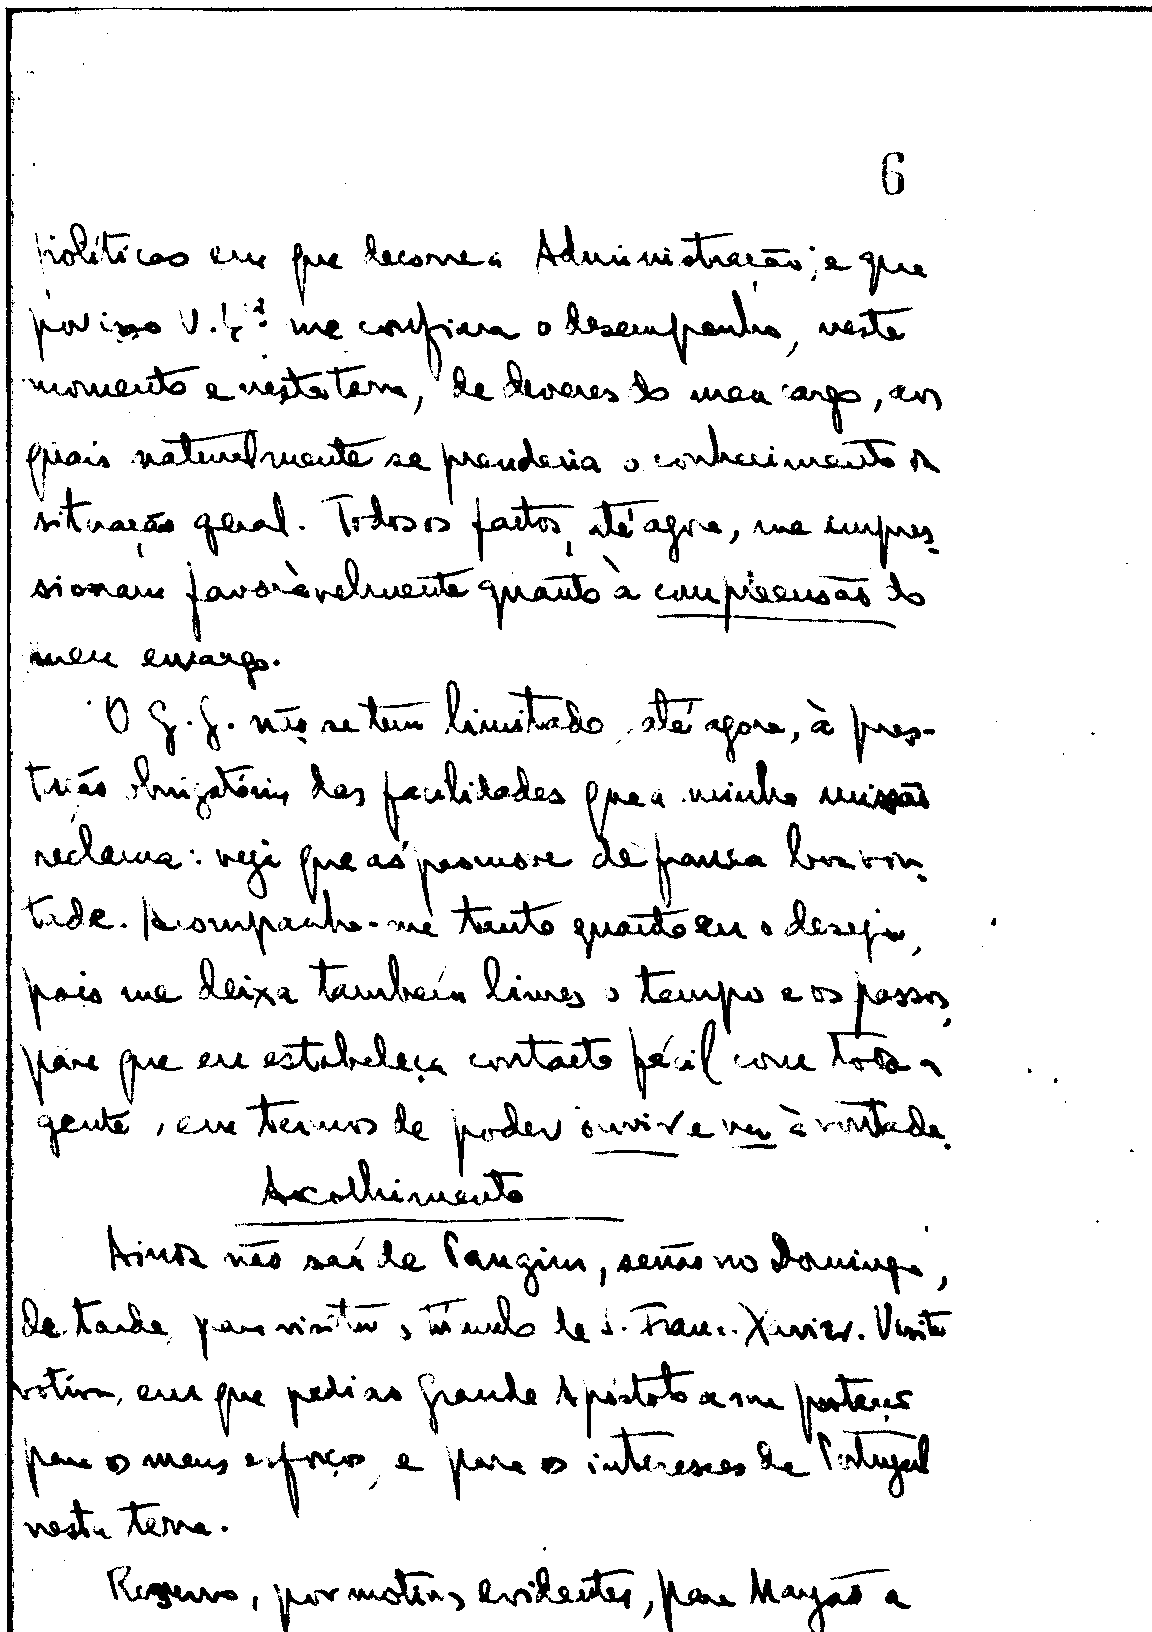 6
políticas em que decorre a Administração; e que
por isso V. Ex.ª me confiara o desempenho, neste
momento e nesta terra, de deveres do meu cargo, aos
quais naturalmente se prenderia o conhecimento da
situação geral. Todos os factos, até agora, me impres-
sionam favoràvelmente quanto à compreensão do
meu encargo.
O G. G. não se tem limitado, até agora, à pres-
tação obrigatória das facilidades que a minha missão
reclama: vejo que as promove de franca boa von-
tade. Acompanha-me tanto quanto eu o desejo,
pois me deixa também livres o tempo e os passos,
para que eu estabeleça contacto fácil com toda a
gente, em termos de poder ouvir e ver à vontade.
Acolhimento
Ainda não saí de Pangim, senão no Domingo,
de tarde, para visitar o túmulo de S. Franc. Xavier. Visita
votiva, em que pedi ao Grande Apóstolo a sua protecção
para os meus esforços, e para os interesses de Portugal
nesta terra.
Reservo, por motivos evidentes, para Mapuçá a